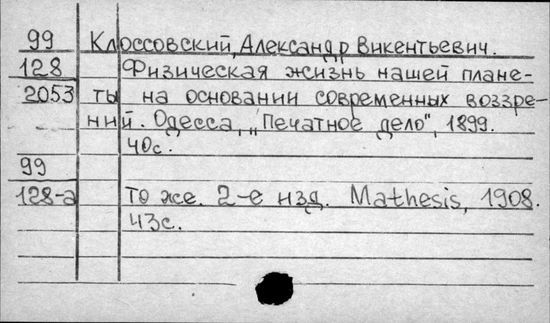 99 Клоссовский, Александр Викентьевич.
128 Физическая жизнь нашей плане-
2053 ты на основании современных воззре-
ний. Одесса, „Печатное дело", 1899.
40с.
99
128-а То же. 2-е изд. Mathesis, 1908.
43с.